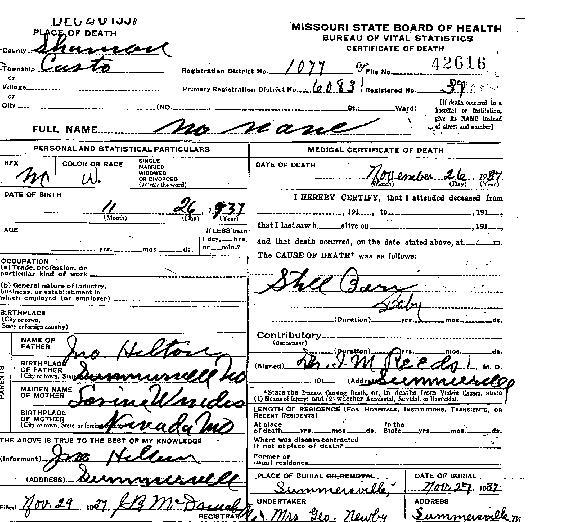 MISSOURI STATE BOARD OF HEALTH
BUREAU OF VITAL STATISTICS
CERTIFICATE OF DEATH
PLACE OF DEATH
County Shannon
Township Casto
or
Village
or
City (NO. St. Ward)
Registration District No. 1077 File No. 42616
Primary Registration District No. 6083 Registered No. 39
(If death occurred in a
hospital or institution,
give its NAME instead
of street and number)
FULL NAME no name
PERSONAL AND STATISTICAL PARTICULARS
SEX M
COLOR OR RACE W.
SINGLE
MARRIED
WIDOWED
OR DIVORCED
(Write the word)
DATE OF BIRTH
11 26 1937
(Month) (Day) (Year)
AGE
yrs. mos. ds.
If LESS than
1 day, hrs.
or min.?
OCCUPATION
(a) Trade, profession, or
particular kind of work
(b) General nature of industry,
business, or establishment in
which employed (or employer)
BIRTHPLACE
(City or town,
State or foreign country)
PARENTS
NAME OF
FATHER Jno Hilton
BIRTHPLACE
OF FATHER
Summersville Mo
MAIDEN NAME
OF MOTHER
BIRTHPLACE
OF MOTHER
Nevada Mo
THE ABOVE IS TRUE TO THE BEST OF MY KNOWLEDGE
(Informant) Jno Hilton
(ADDRESS) Summersville
Filed Nov. 29 1937 J.B. McDonald
REGISTRAR
MEDICAL CERTIFICATE OF DEATH
DATE OF DEATH
November 26 1937
(Month) (Day) (Year)
I HEREBY CERTIFY, that I attended deceased from
, 191 , to , 191 ,
that I last saw h alive on , 191 ,
and that death occurred, on the date stated above, at m.
The CAUSE OF DEATH* was as follows:
Still Born
Baby
(Duration) yrs. mos. ds.
Contributory
(Duration) yrs. mos. ds.
(Signed) Dr. J M Reeds M. D.
, 191 (Address) Summersville
*State the Disease Causing Death, or, in deaths from Violent Causes, state
(1) Means of Injury; and (2) whether Accidental, Suicidal, or Homicidal.
LENGTH OF RESIDENCE (FOR HOSPITALS, INSTITUTIONS, TRANSIENTS, OR
RECENT RESIDENTS)
At place
of death yrs. mos. ds.
In the
State yrs. mos. ds.
Where was disease contracted
if not at place of death?
Former or
usual residence
PLACE OF BURIAL OR REMOVAL
Summersville
DATE OF BURIAL
Nov. 27 1937
UNDERTAKER
Mrs Geo. Newby
ADDRESS
Summersville